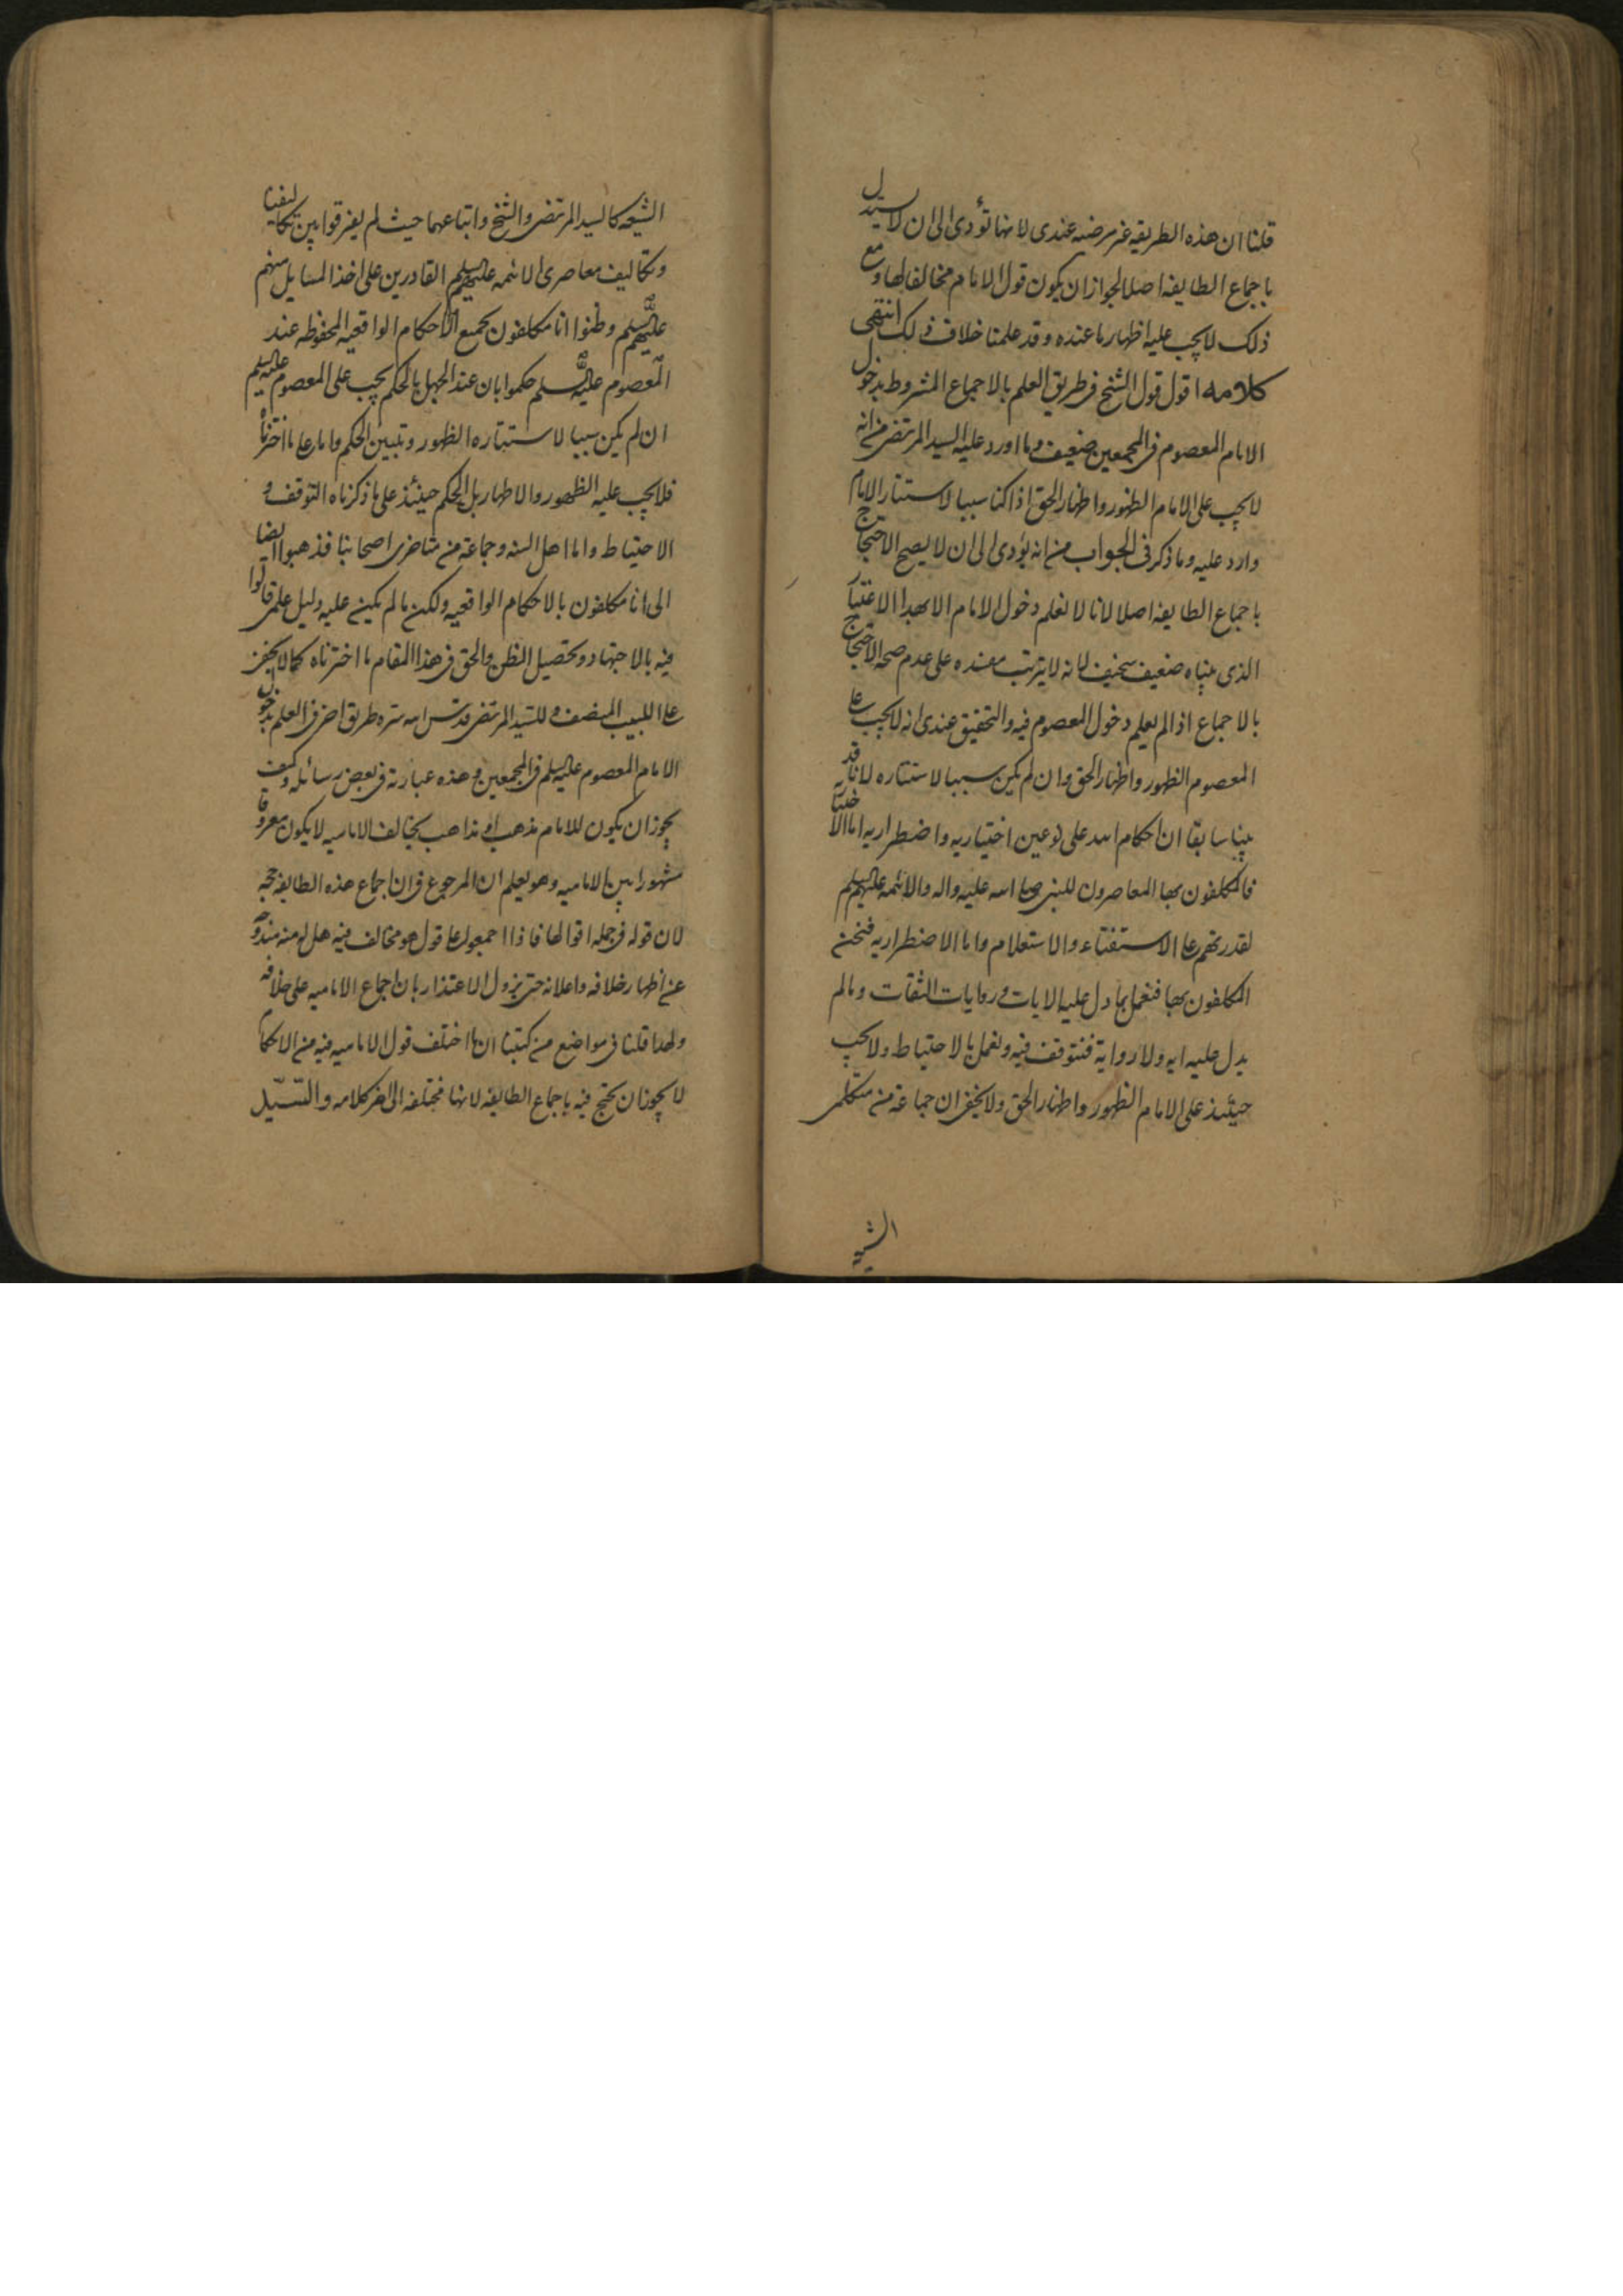 قلنا ان هذه الطريقه غير مرضيه عندى لانها تؤدى الى ان لا يستدل
باجماع الطايفه اصلا لجواز ان يكون قول الامام مخالفا لها ومع
ذلك لا يجب عليه اظهار ما عنده وقد علمنا خلاف ذلك انتهى
كلامه اقول قول الشيخ فى طريق العلم بالاجماع المشروط بدخول
الامام المعصوم فى المجمعين ضعيف وما اورد عليه السيد المرتضى من انه
لا يجب على الامام الظهور واظهار الحق اذا كنا سببا لاستتار الامام
وارد عليه وما ذكر فى الجواب من انه يؤدى الى ان لا يصح الاحتجاج
باجماع الطايفه اصلا لانا لا نعلم دخول الامام الا بهذا الاعتبار
الذى بيناه ضعيف سخيف لانه لا يترتب مفسده على عدم صحه الاحتجاج
بالاجماع اذا لم يعلم دخول المعصوم فيه والتحقيق عندى انه لا يجب على
المعصوم الظهور واظهار الحق وان لم يكن سببا لاستتاره لانا قد
بينا سابقا ان احكام الله على نوعين اختياريه واضطراريه اما الاختياريه
فالمكلفون بها المعاصرون للنبى صلى الله عليه واله والائمه عليهم السلم
لقدرتهم على الاستفتاء والاستعلام واما الاضطراريه فنحن
المكلفون بها فنعمل بما دل عليه الايات وروايات الثقات وما لم
يدل عليه ايه ولا رواية فنتوقف فيه ونعمل بالاحتياط ولا يجب
حينئذ على الامام الظهور واظهار الحق ولا يخفى ان جماعة من متكلمى
الشيعه
الشيعه كالسيد المرتضى والشيخ واتباعهما حيث لم يفرقوا بين تكاليفنا
وتكاليف معاصرى الائمه عليهم السلم القادرين على اخذ المسايل منهم
عليهم السلم وظنوا انا مكلفون بجميع الاحكام الواقعيه المحفوظه عند
المعصوم عليه السلم حكموا بان عند الجهل بالحكم يجب على المعصوم عليه السلم
ان لم يكن سببا لاستتاره الظهور وتبيين الحكم واما على ما اخترناه
فلا يجب عليه الظهور والاظهار بل الحكم حينئذ على ما ذكرناه التوقف و
الاحتياط واما اهل السنه وجماعة من متاخرى اصحابنا فذهبوا ايضا
الى انا مكلفون بالاحكام الواقعيه ولكن ما لم يكن عليه دليل علمى قالوا
فيه بالاجتهاد وتحصيل الظن والحق فى هذا المقام ما اخترناه كما لا يخفى
على اللبيب المنصف وللسيد المرتضى قدس الله سره طريق اخر فى العلم بدخول
الامام المعصوم عليه السلم فى المجمعين وهذه عبارته فى بعض رسائله وكيف
يجوز ان يكون للامام مذهب او مذاهب يخالف الاماميه لا يكون معروفا
مشهورا بين الاماميه وهو يعلم ان المرجوع فى ان اجماع هذه الطايفه حجه
لان قوله فى جمله اقوالها فاذا اجمعوا على قول هو مخالف فيه هل له منه مندوحه
عن اظهار خلافه واعلانه حتى يزول الاعتذار بان اجماع الاماميه على خلافه
ولهذا قلنا فى مواضع من كتبنا ان ما اختلف قول الاماميه فيه من الاحكام
لا يجوز ان يحتج فيه باجماع الطائفه لانها مختلفه الى اخر كلامه والسيد